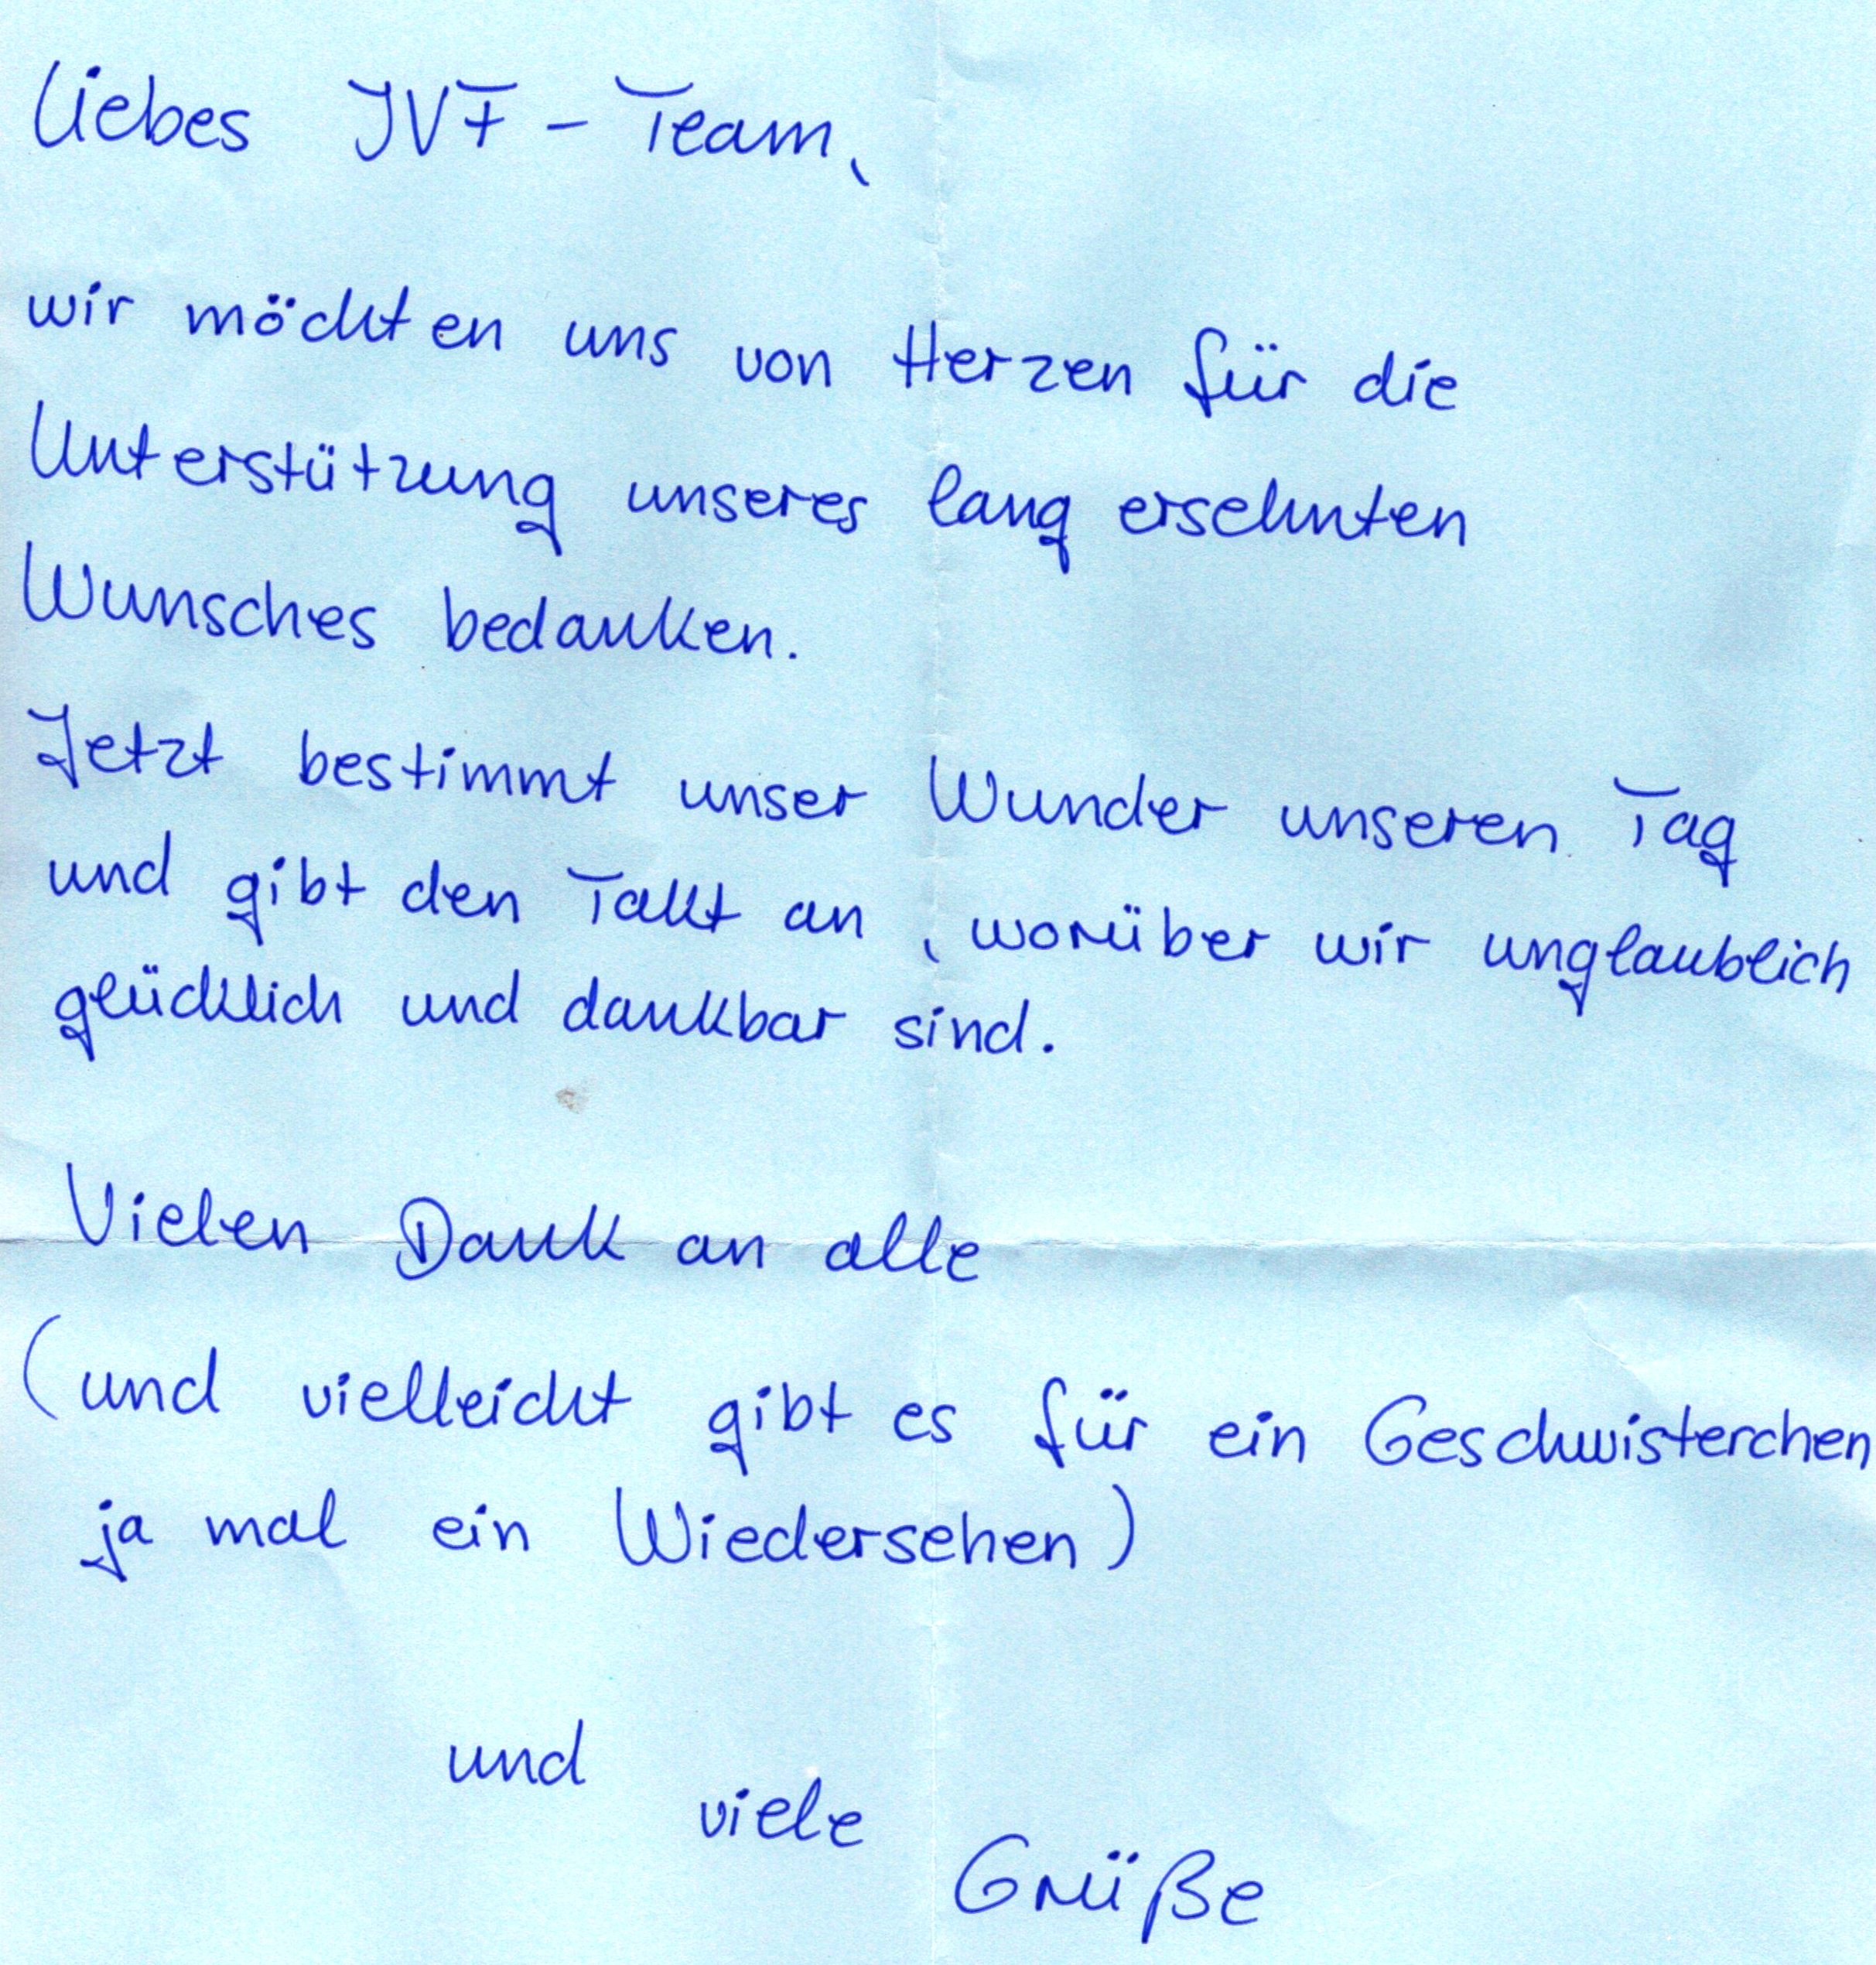 Liebes IVF - Team,
wir möchten uns von Herzen für die
Unterstützung unseres lang ersehnten
Wunsches bedanken.
Jetzt bestimmt unser Wunder unseren Tag
und gibt den Takt an, worüber wir unglaublich
glücklich und dankbar sind.
Vielen Dank an alle
(und vielleicht gibt es für ein Geschwisterchen
ja mal ein Wiedersehen)
und viele Grüße